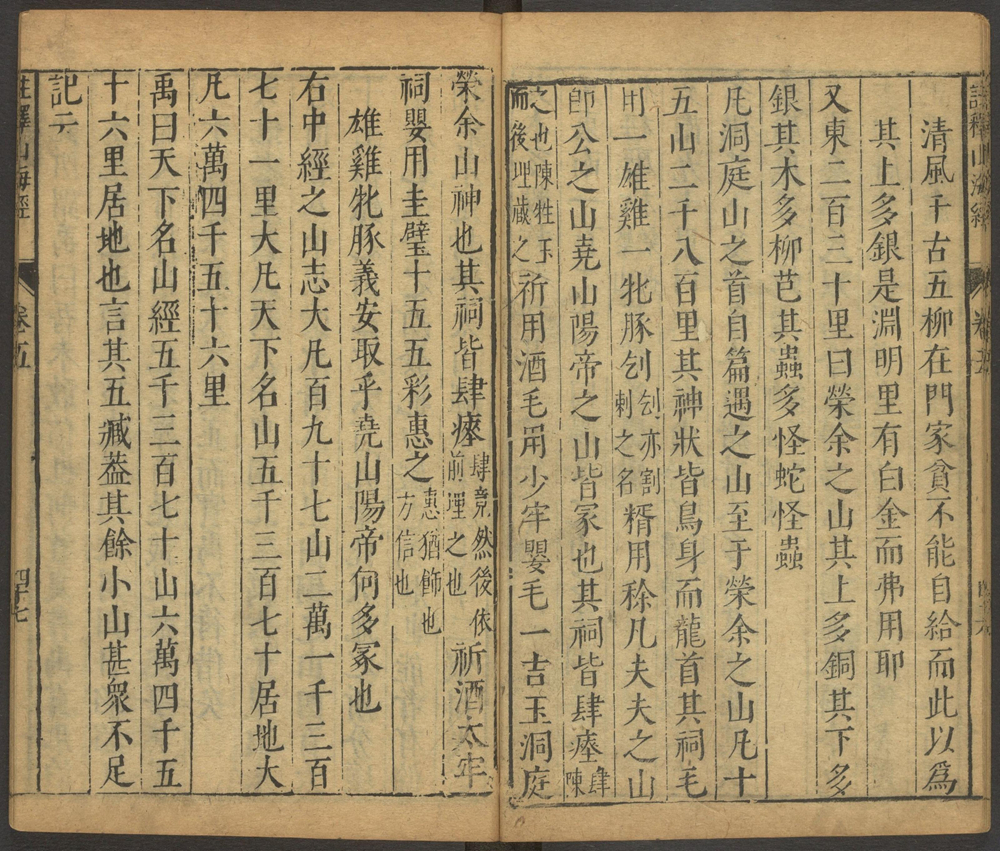 註釋山海經 卷五
清風千古五柳在門家貧不能自給而此以爲
其上多銀是淵明里有白金而弗用耶
又東二百三十里曰榮余之山其上多銅其下多
銀其木多柳芑其蟲多怪蛇怪蟲
凡洞庭山之首自篇遇之山至于榮余之山凡十
五山二千八百里其神狀皆鳥身而龍首其祠毛
用一雄雞一牝豚刉刉亦割刺之名糈用稌凡夫夫之山
即公之山堯山陽帝之山皆冢也其祠皆肆瘞肆陳
之也陳牲玉而後埋藏之祈用酒毛用少牢嬰毛一吉玉洞庭
榮余山神也其祠皆肆瘞肆竟然後依前埋之也祈酒太牢
祠嬰用圭璧十五五彩惠之惠猶飾也方信也
雄雞牝豚義安取乎堯山陽帝何多冢也
右中經之山志大凡百九十七山二萬一千三百
七十一里大凡天下名山五千三百七十居地大
凡六萬四千五十六里
禹曰天下名山經五千三百七十山六萬四千五
十六里居地也言其五臧葢其餘小山甚衆不足
記云
註釋山海經 卷五 四十七